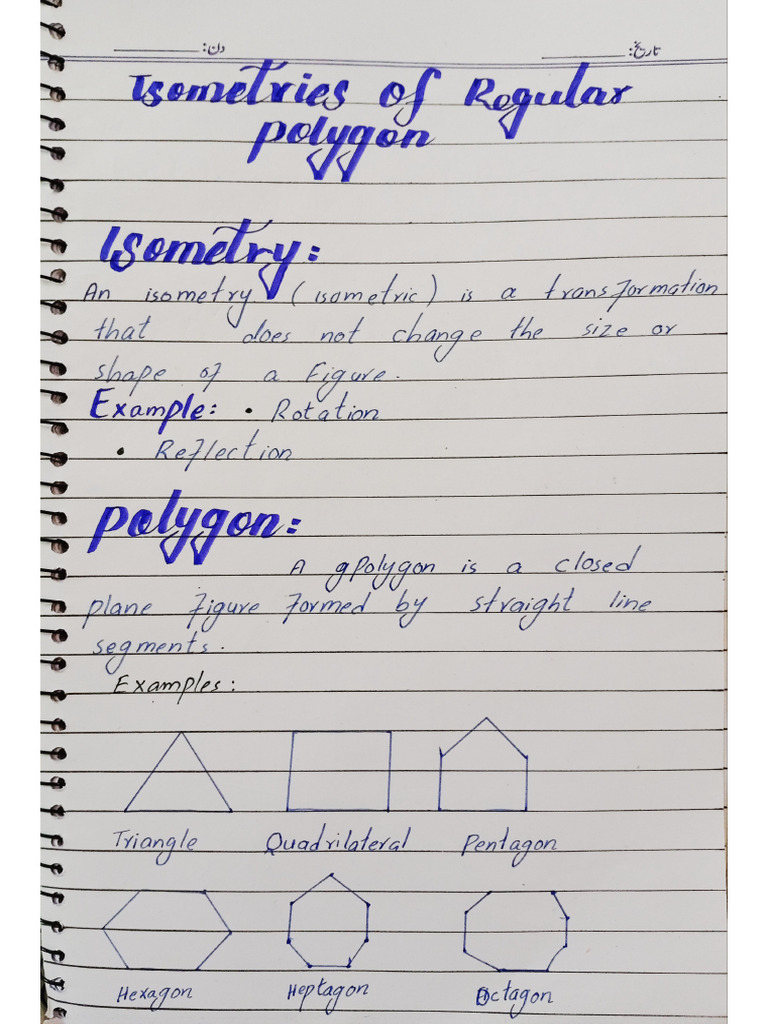 دن: تاریخ:
Isometries of Regular
polygon
Isometry:
An isometry (isometric) is a transformation
that does not change the size or
shape of a Figure.
Example: • Rotation
• Reflection
Polygon:
A polygon is a closed
plane figure formed by straight line
segments.
Examples:
Triangle Quadrilateral Pentagon
Hexagon Heptagon Octagon